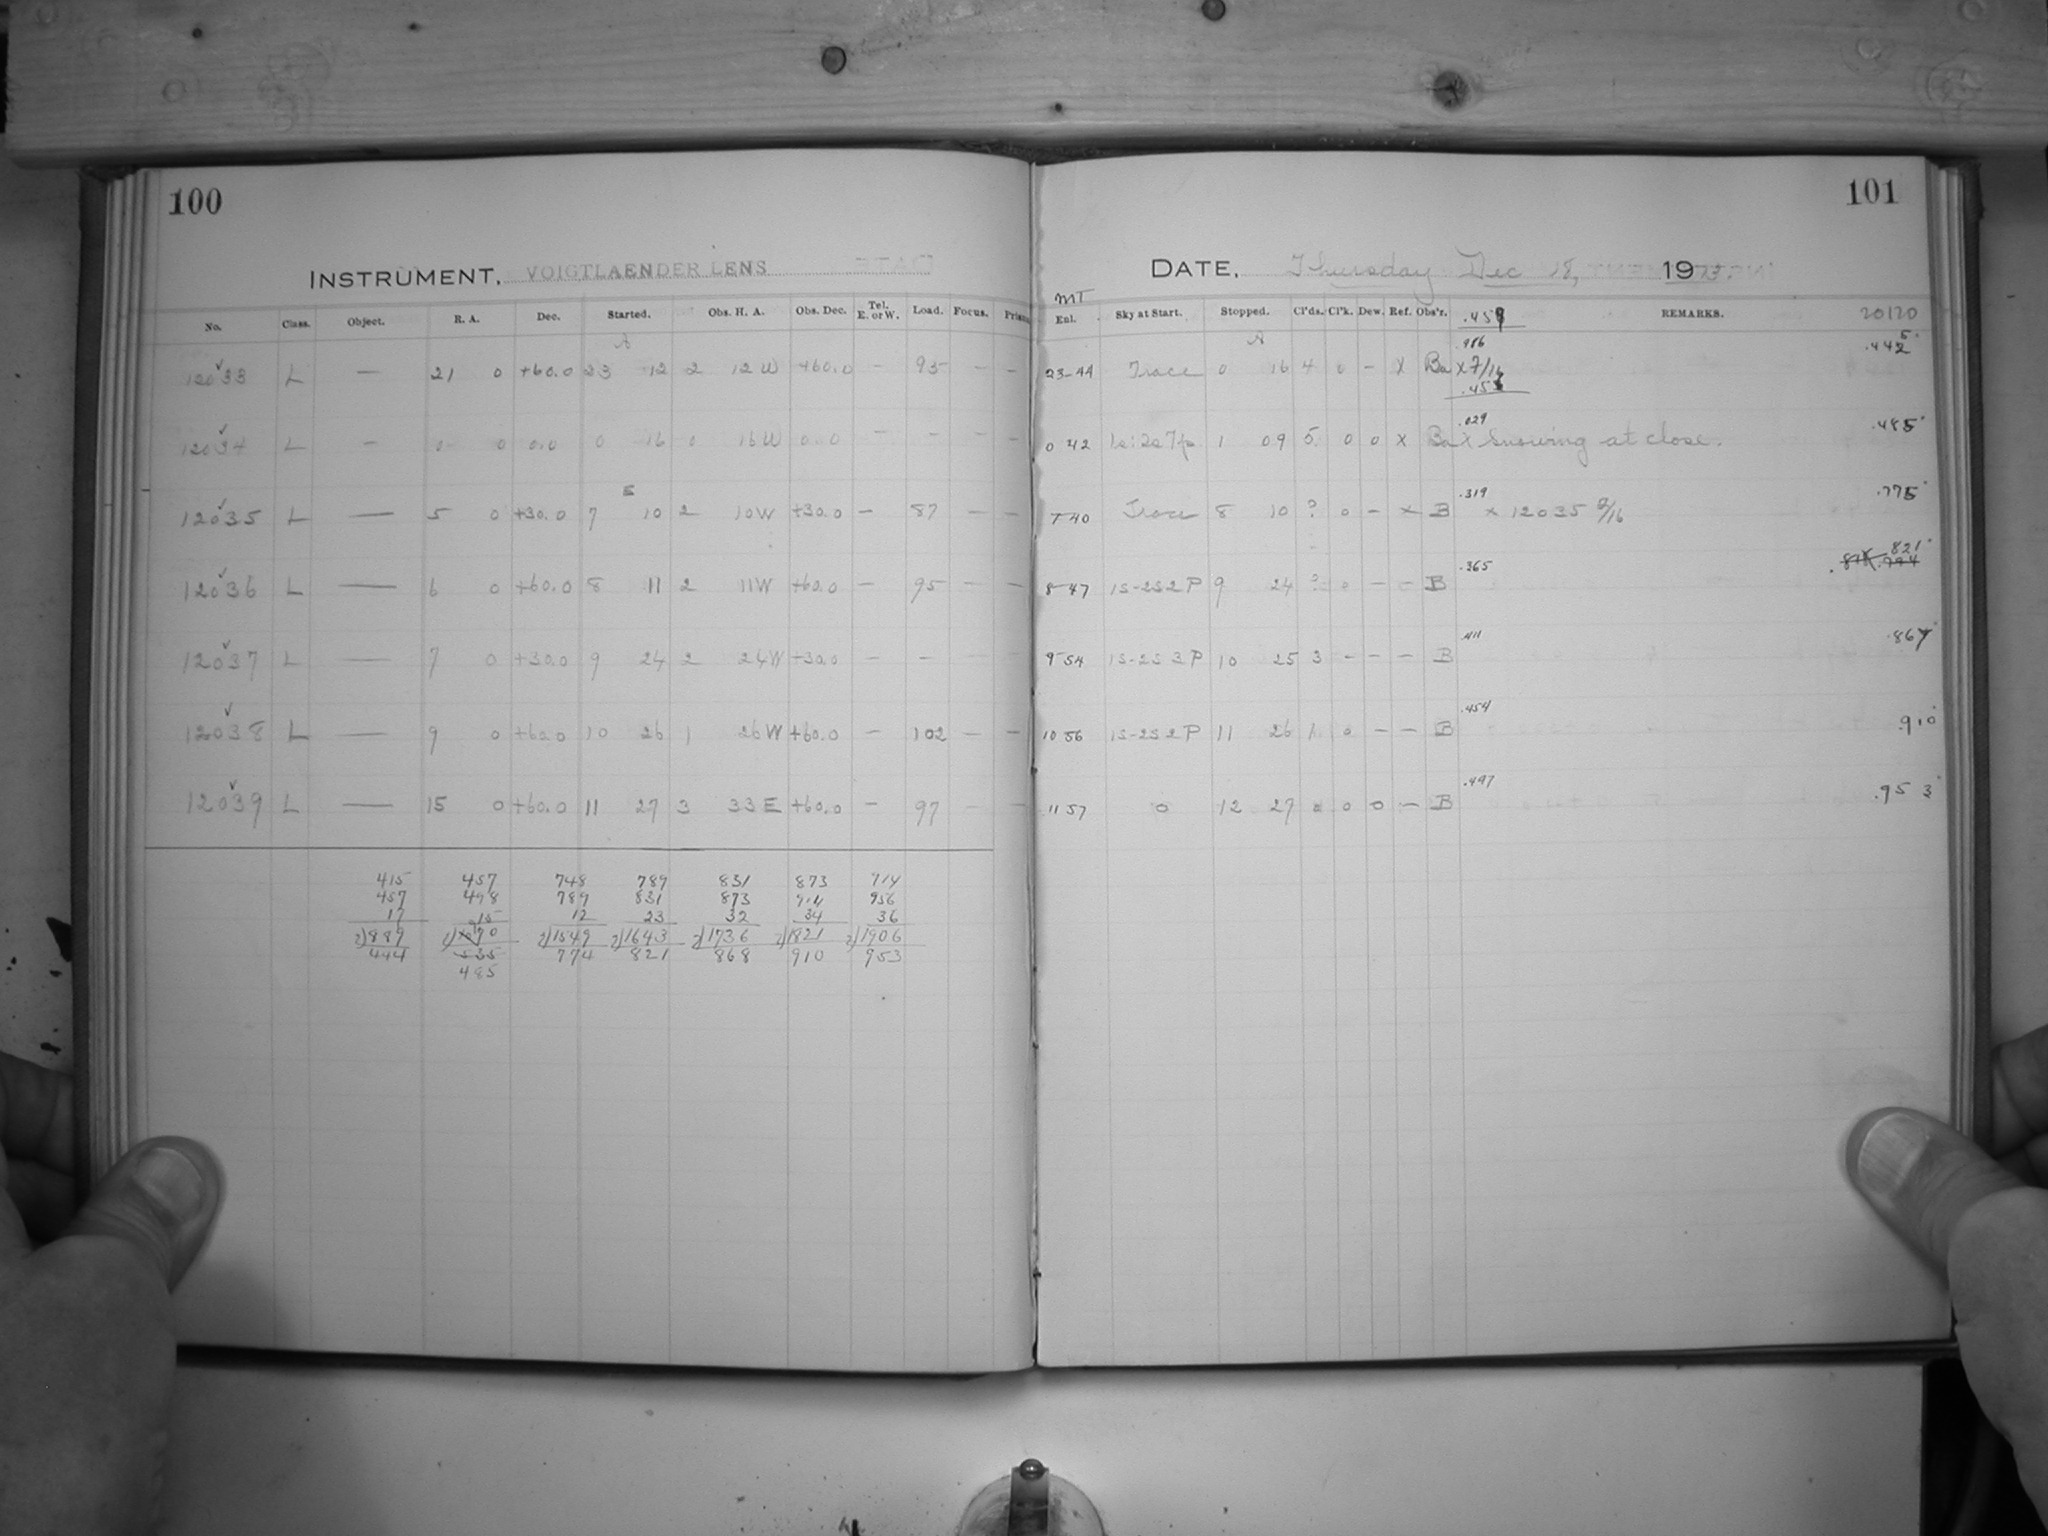 100
INSTRUMENT, VOIGTLAENDER LENS
No. Class. Object. R. A. Dec. Started. Obs. H. A. Obs. Dec. Tel. E. or W. Load. Focus. Prism
A
12033 L — 21 0 +60.0 23 12 2 12 W +60.0 – 95 – –
12034 L – 0 0 0.0 0 16 0 16 W 0.0 – – – –
E
12035 L — 5 0 +30.0 7 10 2 10 W +30.0 – 87 – –
12036 L — 6 0 +60.0 8 11 2 11 W +60.0 – 95 – –
12037 L — 7 0 +30.0 9 24 2 24 W +30.0 – –
12038 L — 9 0 +60.0 10 26 1 26 W +60.0 – 102 – –
12039 L — 15 0 +60.0 11 27 3 33 E +60.0 – 97 – –
415 457 748 789 831 873 914
457 498 789 831 873 914 956
17 15 12 23 32 34 36
2)889 2)970 2)1549 2)1643 2)1736 2)1821 2)1906
444 535 774 821 868 910 953
485
101
DATE, Thursday Dec 18, 1913.
MT
Enl. Sky at Start. Stopped. Cl'ds. Cl'k. Dew. Ref. Obs'r. REMARKS. 20120
A
.986 .442
23-44 Trace 0 16 4 0 – X Ba x 7/16
.029 .485
0 42 1s:2s7p. 1 09 5 0 0 x Ba x Snowing at close.
.319 .775
7 40 Trace 8 10 ? 0 – x B x 12035 2/16
.365 .821
8 47 1S-2S2P 9 24 ? 0 – – B
.411 .867
9 54 1S-2S3P 10 25 3 – – – B
.454 .910
10 56 1S-2S2P 11 26 1 0 – – B
.497 .953
11 57 0 12 27 0 0 – B